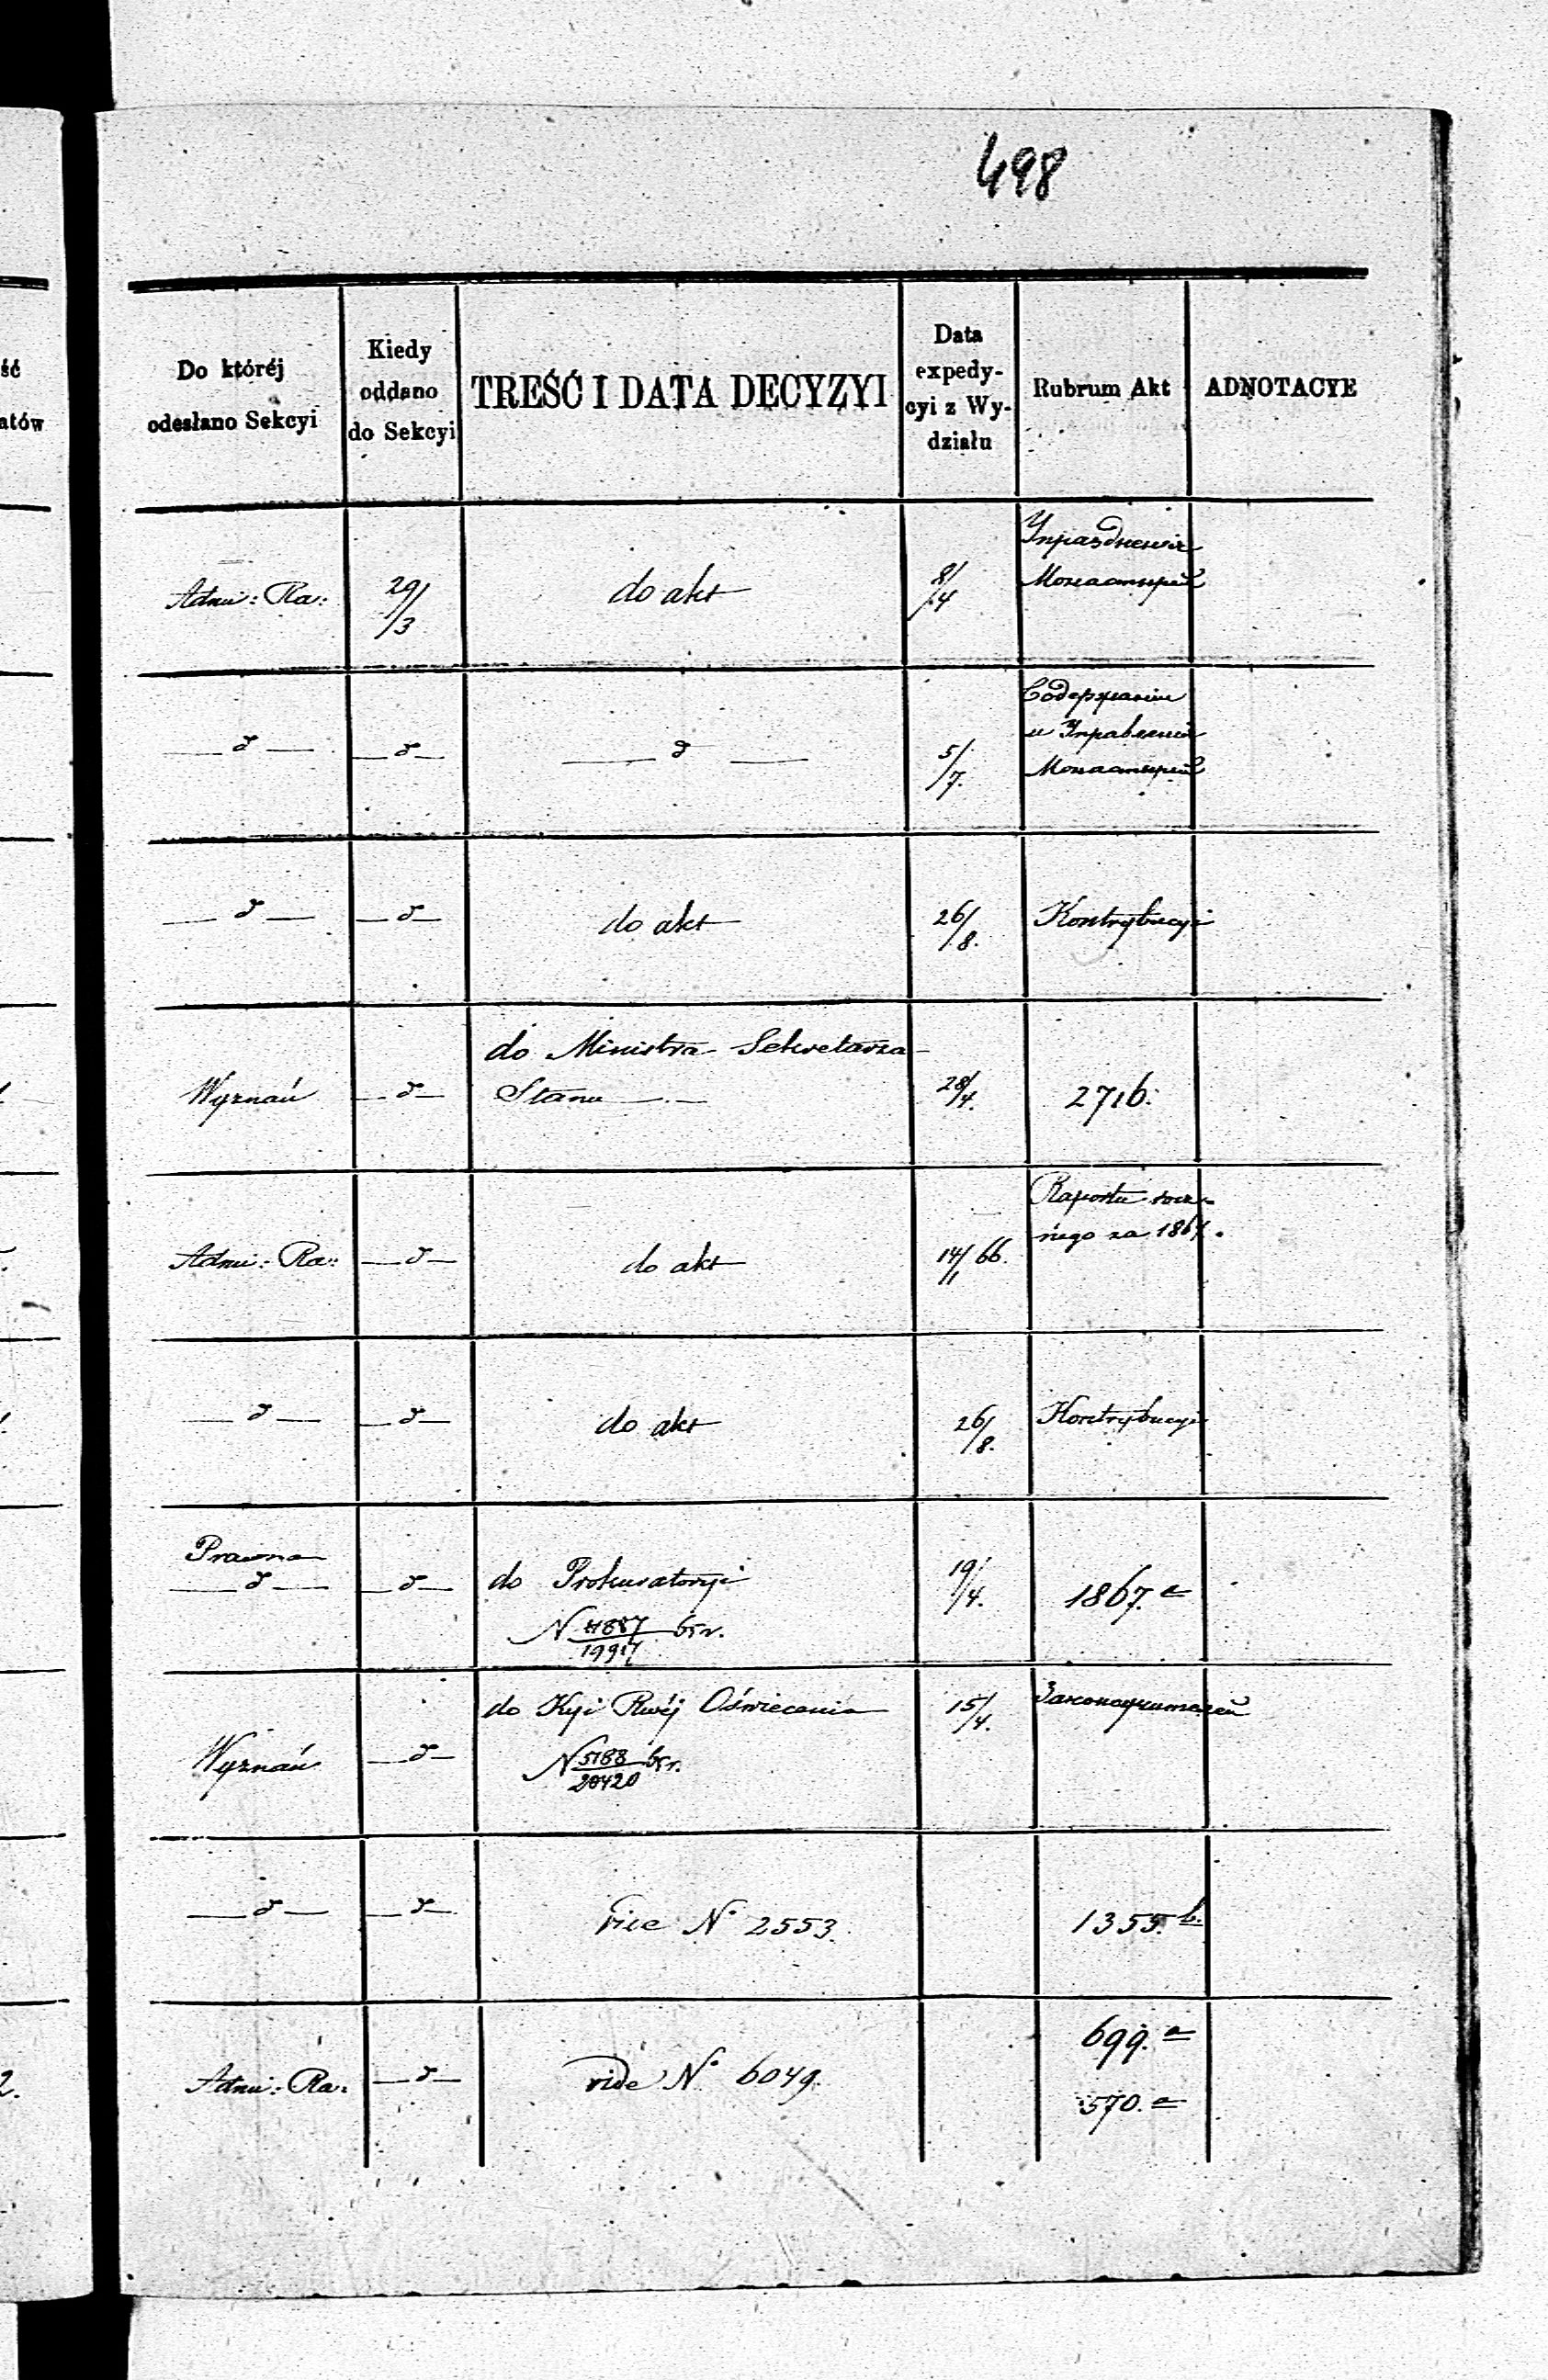 498
Do któréj
odesłano Sekcyi
Kiedy
oddano
do Sekcyi
TREŚĆ I DATA DECYZYI
Data
expedy-
cyi z Wy-
działu
Rubrum Akt
ADNOTACYE
ść
atów
Admi: Ra:
29/3
do akt
8/4
Упраздненія
Монастырей
— d —
— d —
— d —
5/7.
Содержаніи
и Управленія
Монастырей
— d —
— d —
do akt
26/8.
Kontrybucyi
Wyznań
— d —
do Ministra Sekretarza
Stanu —
28/4.
271 b.
Admi: Ra:
— d —
do akt
14/1 66.
Raportu rocz-
nego za 1864.
— d —
— d —
do akt
26/8.
Kontrybucyi
Prawna
— d —
— d —
do Prokuratoryi
N 4887/19917 65 r.
19/4.
1867. a
Wyznań
— d —
do Kyi Rwéj Oświecenia
N 5188/20420 65 r.
15/4.
Законоучителей
— d —
— d —
vice N° 2553.
1355. b.
Admi: Ra:
— d —
vide N° 6049.
699. a
570. a
2.